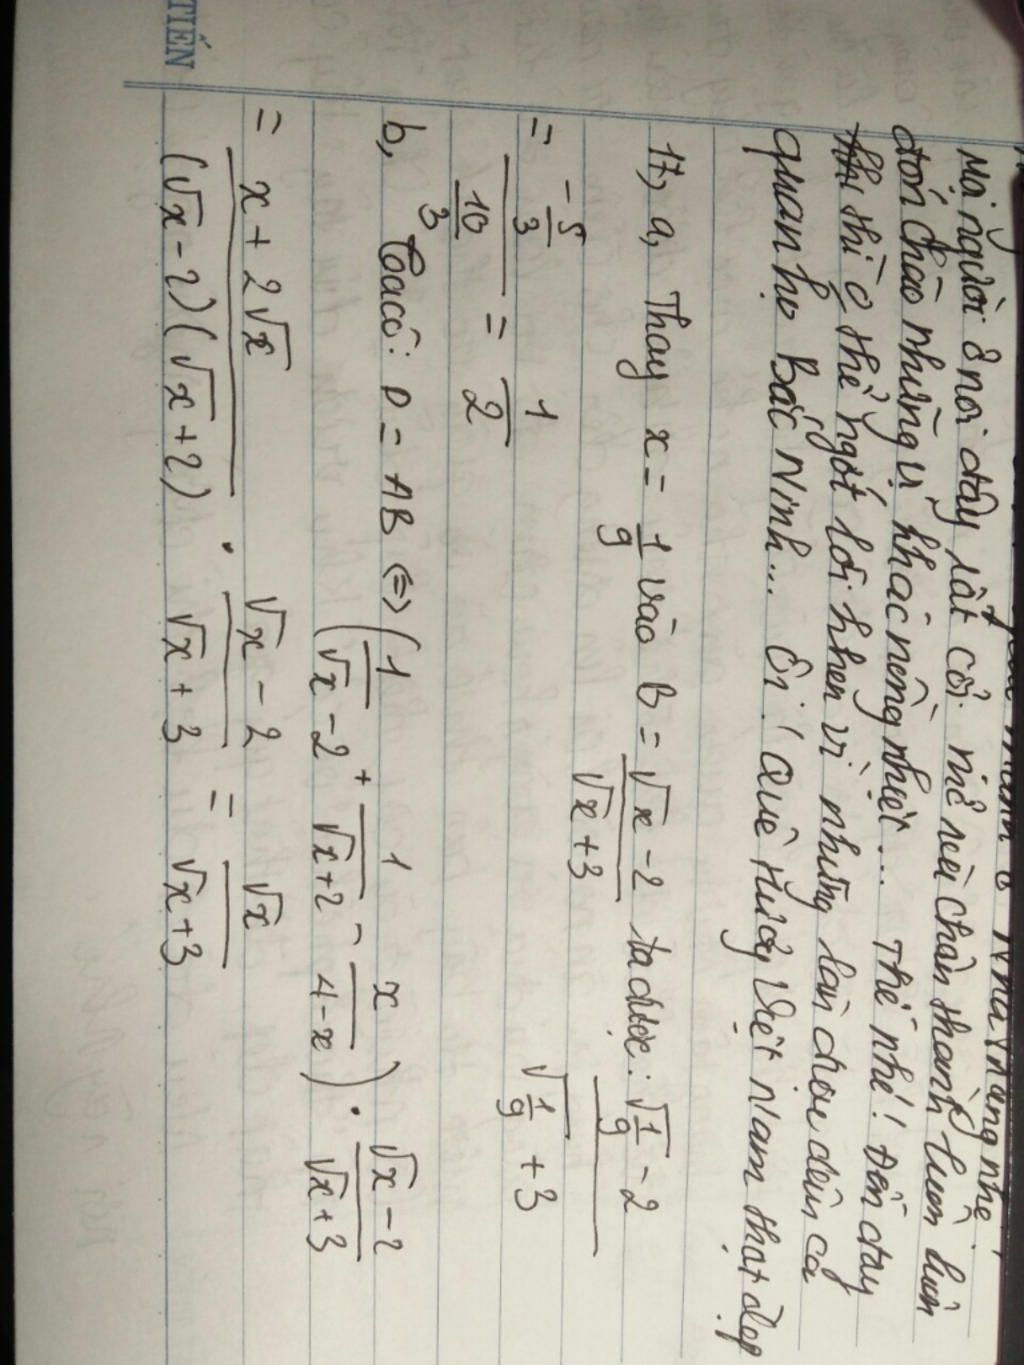 mọi người ở nơi đây rất cởi mở nên chân thành luôn luôn
đón chào những vị khác nồng nhiệt... Thế nhé! Đến đây
thì thì có thể ngớt lời khen vì những làn điệu dân ca
quan họ Bắc Ninh... Ôi! Quê hương Việt Nam thật đẹp
17, a, Thay x = 1/9 vào B = (√x - 2)/(√x + 3) ta được: (√(1/9) - 2)/(√(1/9) + 3)
= (-5/3)/(10/3) = 1/2
b, Ta có: P = AB ⇔ (1/(√x - 2) + 1/(√x + 2) - x/(4 - x)) . (√x - 2)/(√x + 3)
= (x + 2√x)/((√x - 2)(√x + 2)) . (√x - 2)/(√x + 3) = √x/(√x + 3)
TIẾN